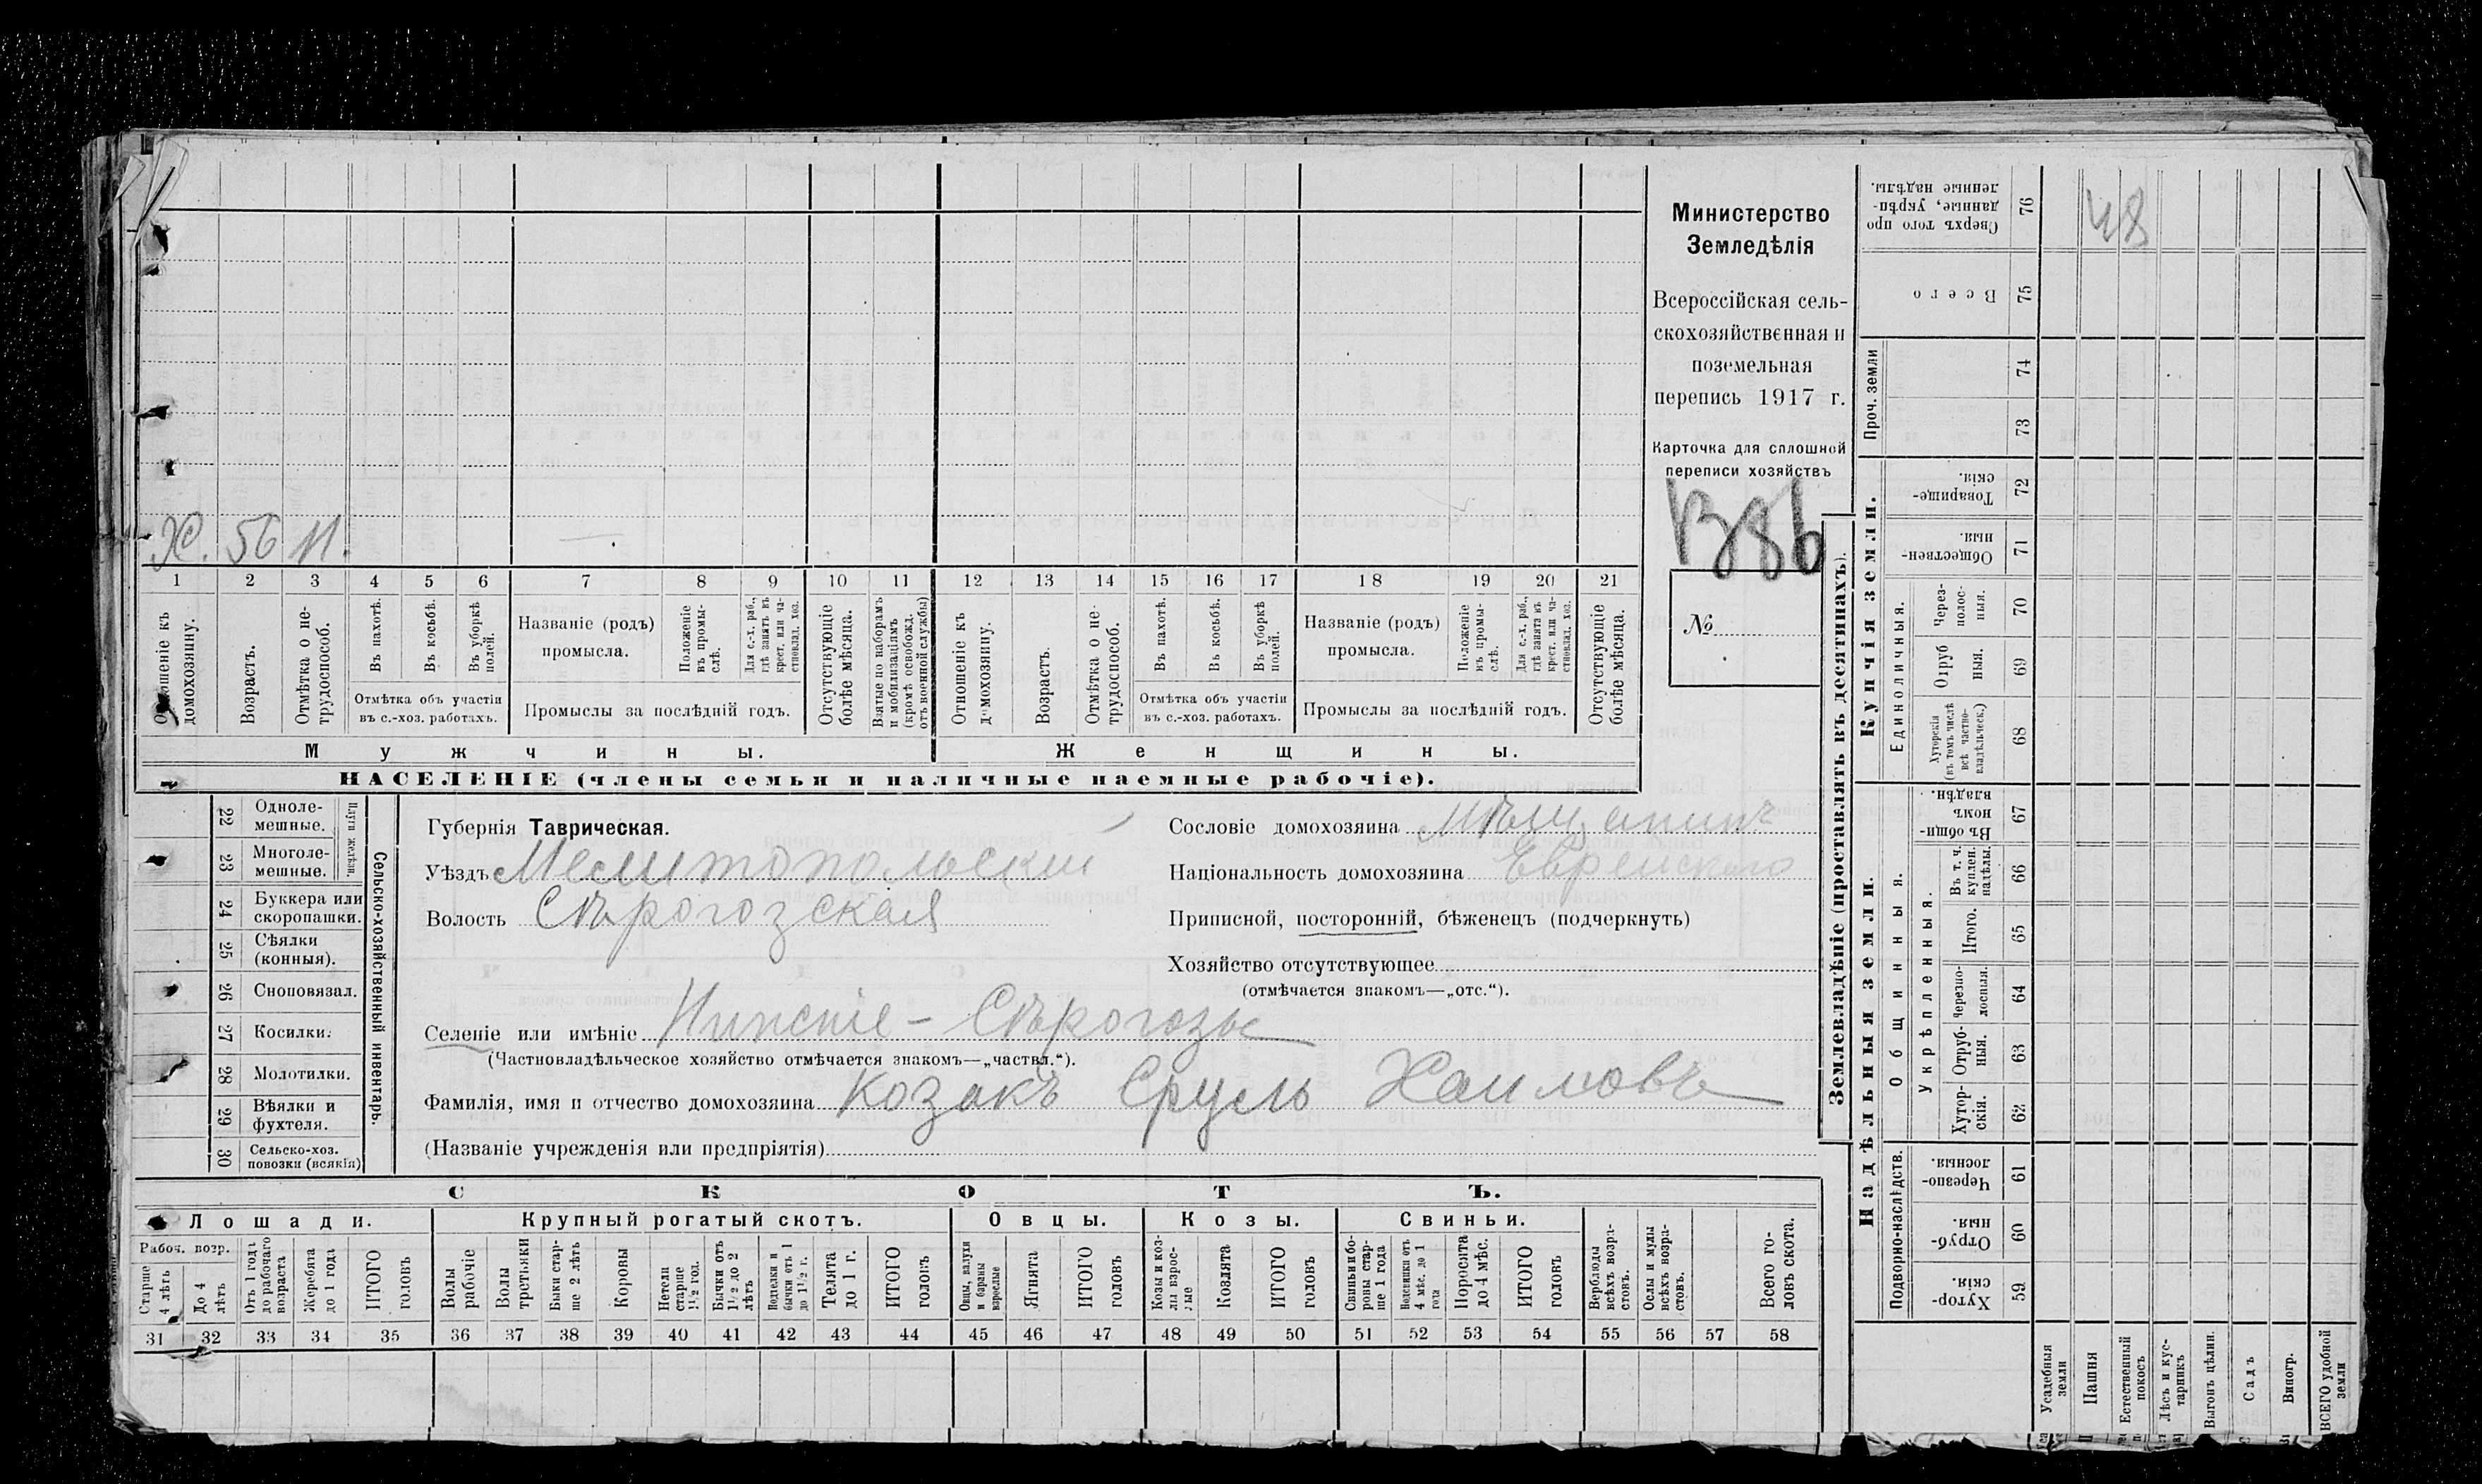 Х. 56 н.
1 2 3 4 5 6 7 8 9 10 11 12 13 14 15 16 17 18 19 20 21
Отношеніе къ домохозяину.
Возрастъ.
Отмѣтка о нетрудоспособ.
Въ пахотѣ.
Въ косьбѣ.
Въ уборкѣ полей.
Отмѣтка объ участіи
въ с.-хоз. работахъ.
Названіе (родъ)
промысла.
Положеніе
въ промы-
слѣ.
Для с.-х. раб.,
гдѣ занятъ въ
крест. или ча-
стновлад. хоз.
Промыслы за послѣдній годъ.
Отсутствующіе
болѣе мѣсяца.
Взятые по наборамъ
и мобилизаціямъ
(кромѣ освобожд.
отъ военной службы)
Отношеніе къ
домохозяину.
Возрастъ.
Отмѣтка о не-
трудоспособ.
Въ пахотѣ.
Въ косьбѣ.
Въ уборкѣ
полей.
Отмѣтка объ участіи
въ с.-хоз. работахъ.
Названіе (родъ)
промысла.
Положеніе
въ промы-
слѣ.
Для с.-х. раб.,
гдѣ занята въ
крест. или ча-
стновлад. хоз.
Промыслы за послѣдній годъ.
Отсутствующіе
болѣе мѣсяца.
Мужчины.
Женщины.
НАСЕЛЕНІЕ (члены семьи и наличные наемные рабочіе).
Министерство
Земледѣлія
Всероссійская сель-
скохозяйственная и
поземельная
перепись 1917 г.
Карточка для сплошной
переписи хозяйствъ
№
22 Одноле-
мешные.
23 Многоле-
мешные.
Плуги желѣзн.
24 Буккера или
скоропашки.
25 Сѣялки
(конныя).
26 Сноповязал.
27 Косилки.
28 Молотилки.
29 Вѣялки и
фухтеля.
30 Сельско-хоз.
повозки (всякія)
Сельско-хозяйственный инвентарь.
Губернія Таврическая.
Уѣздъ Мелитопольскій
Волость Сѣрогозская
Сословіе домохозяина Мѣщанинъ
Національность домохозяина Еврейского
Приписной, посторонній, бѣженецъ (подчеркнуть)
Хозяйство отсутствующее
(отмѣчается знакомъ—„отс.“).
Селеніе или имѣніе Нижніе-Сѣрогозы
(Частновладѣльческое хозяйство отмѣчается знакомъ—„частвл.“).
Фамилія, имя и отчество домохозяина Козакъ Сруль Хаимовъ
(Названіе учрежденія или предпріятія)
СКОТЪ.
Лошади.
Крупный рогатый скотъ.
Овцы.
Козы.
Свиньи.
Рабоч. возр.
Старше
4 лѣтъ
До 4
лѣтъ
Отъ 1 года
до рабочаго
возраста
Жеребята
до 1 года
ИТОГО
головъ
Волы
рабочіе
Волы
третьяки
Быки стар-
ше 2 лѣтъ
Коровы
Нетели
старше
1½ год.
Бычки отъ
1½ до 2
лѣтъ
Подтелки и
бычки отъ 1
до 1½ г.
Телята
до 1 г.
ИТОГО
головъ
Овцы, валухи
и бараны
взрослые
Ягнята
ИТОГО
головъ
Козы и коз-
лы взрос-
лые
Козлята
ИТОГО
головъ
Свиньи и бо-
ровы стар-
ше 1 года
Подсвинки отъ
4 мѣс. до 1
года
Поросята
до 4 мѣс.
ИТОГО
головъ
Верблюды
всѣхъ возра-
стовъ.
Ослы и мулы
всѣхъ возра-
стовъ.
Всего го-
ловъ скота.
31 32 33 34 35 36 37 38 39 40 41 42 43 44 45 46 47 48 49 50 51 52 53 54 55 56 57 58
Землевладѣніе (проставлять въ десятинахъ).
Купчія земли.
Надѣльныя земли.
Сверхъ того про
данные, укрѣп-
ленные надѣлы.
76
48
Всего
75
Проч. земли
74
73
Товарище-
скія.
72
Обществен-
ныя.
71
Единоличныя.
Через-
полос-
ныя.
70
Отруб
ныя.
69
Хуторскія
(въ томъ числѣ
всѣ частно-
владѣльческ.)
68
Общинныя.
Въ общи-
номъ
владѣн.
67
Укрѣпленныя.
Въ т. ч.
куплен.
надѣлы.
66
Итого.
65
Черезпо-
лосныя.
64
Отруб-
ныя.
63
Хутор-
скія.
62
Подворно-наслѣдств.
Черезпо-
лосныя.
61
Отруб-
ныя.
60
Хутор-
скія.
59
Усадебныя
земли
Пашня
Естественный
покосъ
Лѣсъ и кус-
тарникъ
Выгонъ цѣлин.
Садъ
Виногр.
ВСЕГО удобной
земли